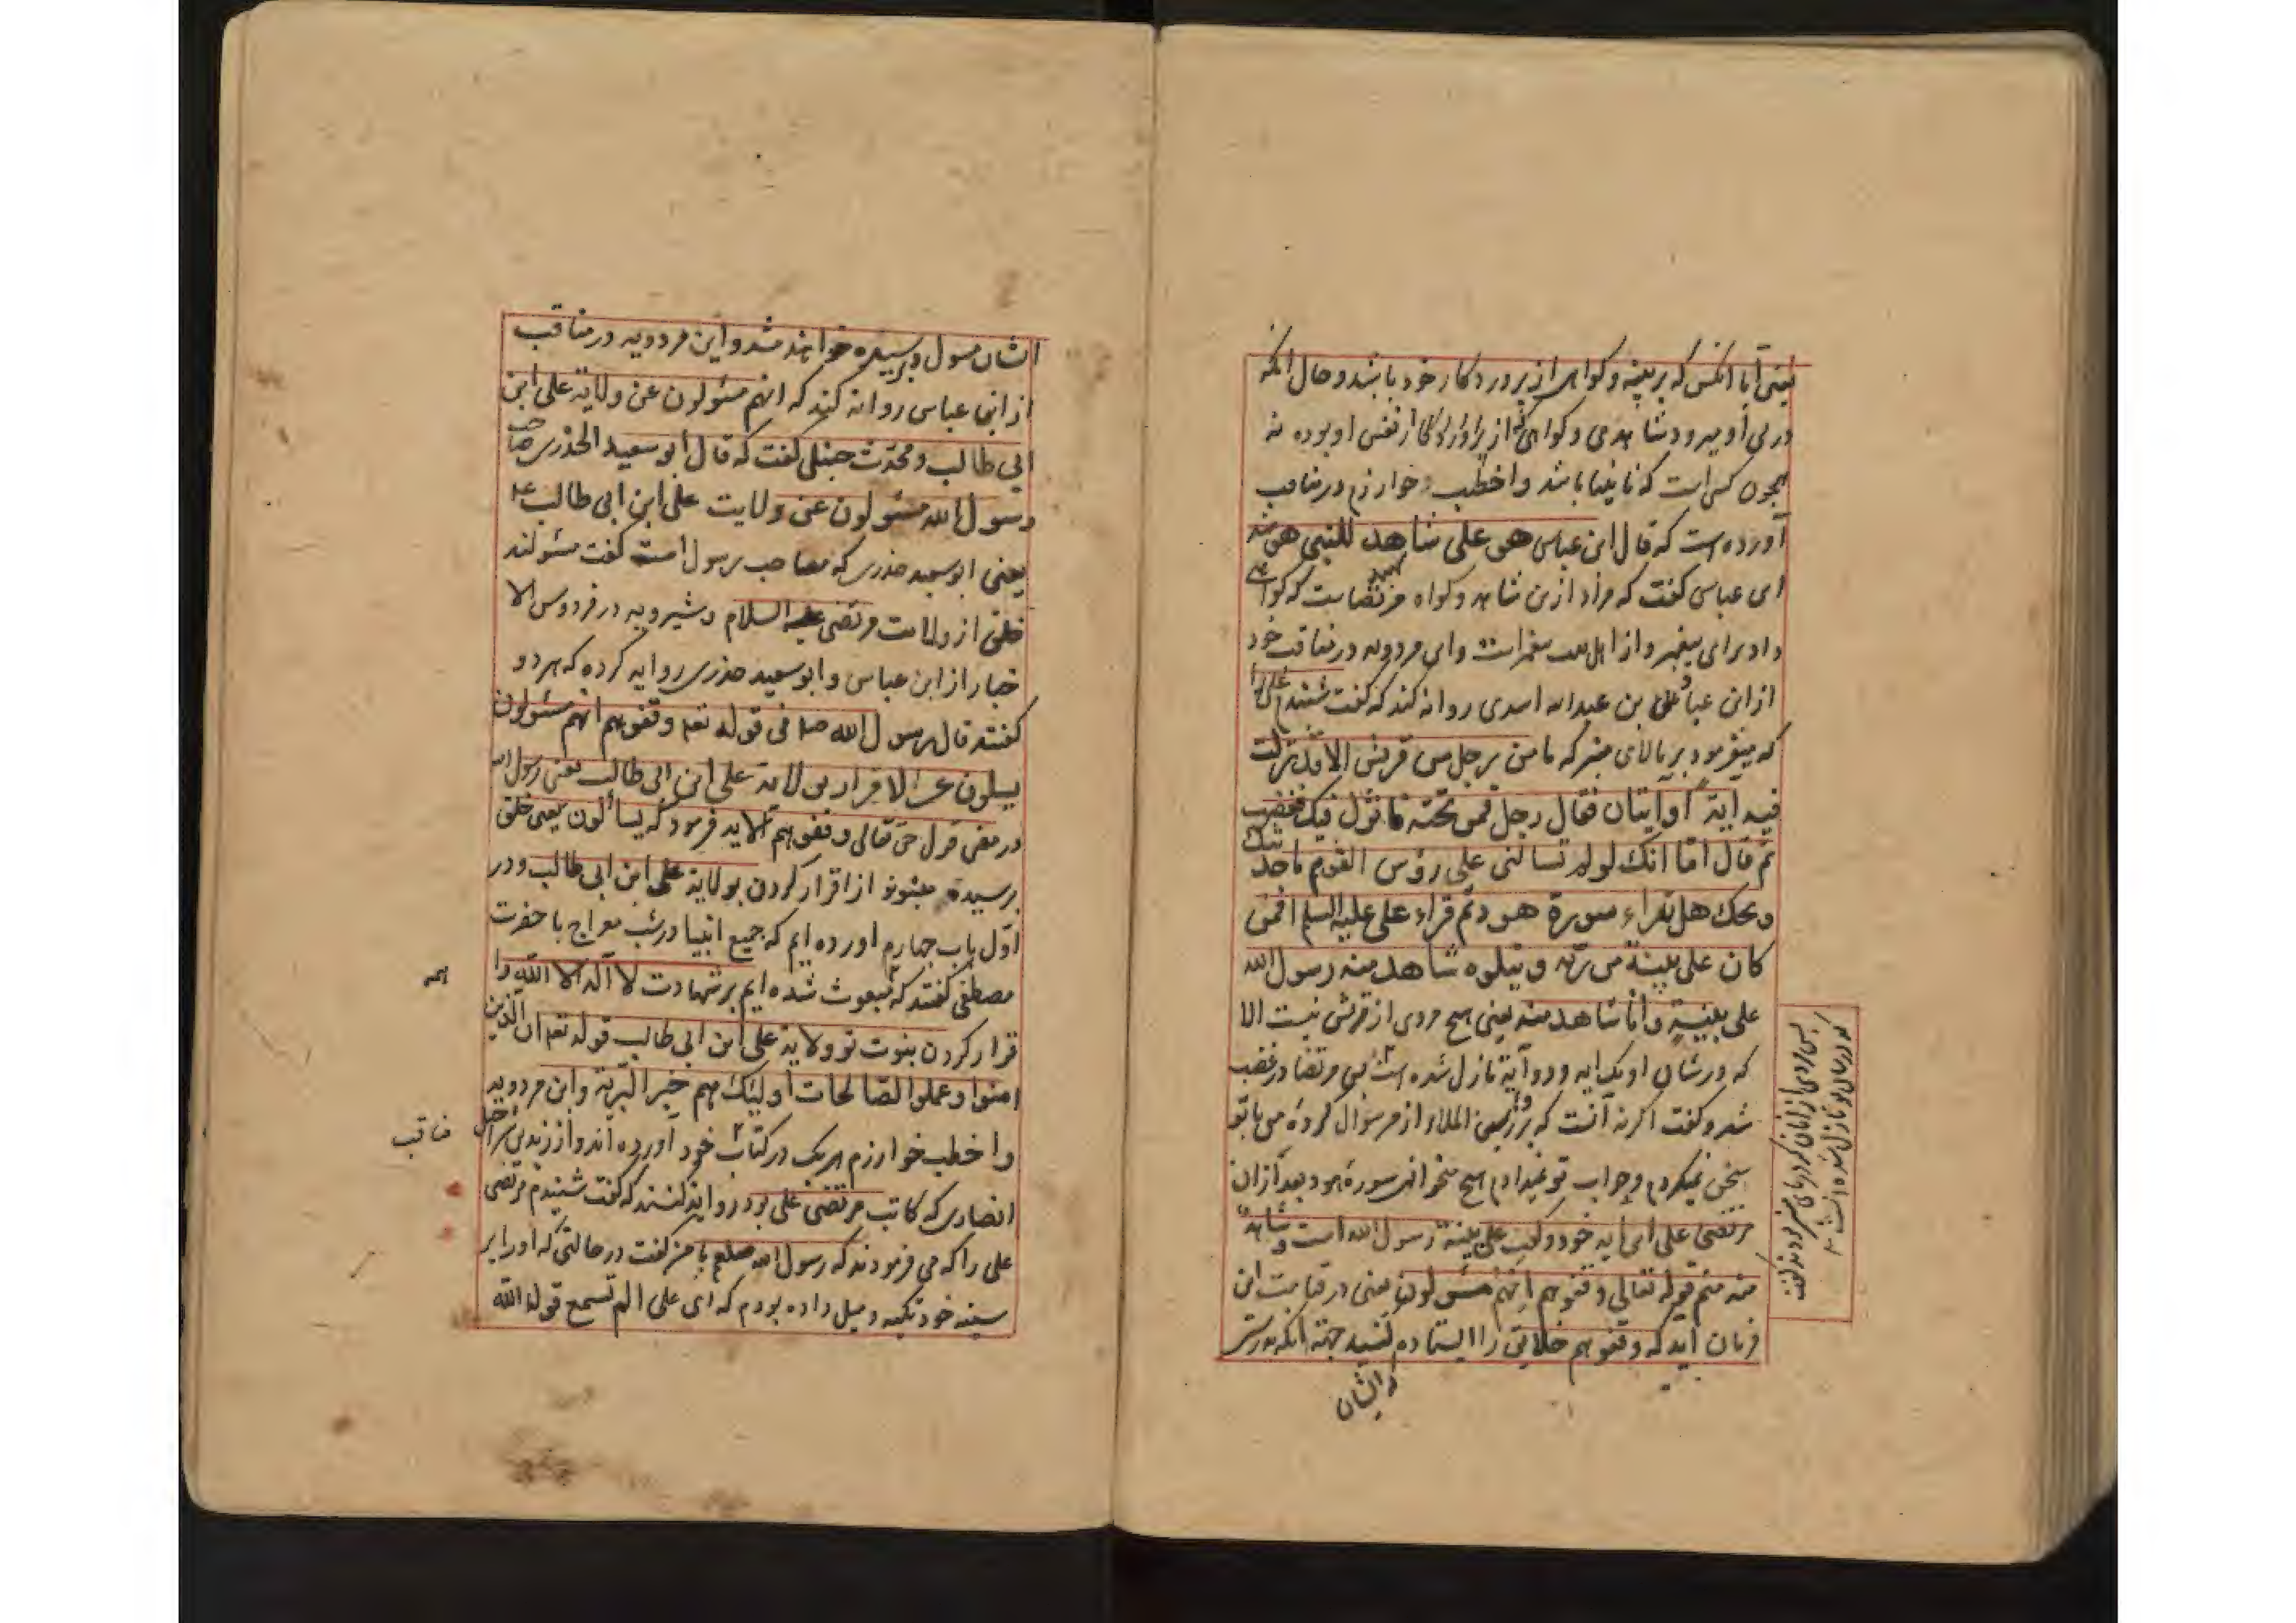 یعنی آیا آنکس که بر بینه و کواهی از پروردکار خود باشد و حال آنکه
در پی او میرود شاهدی و کواهی که از نفس او بوده نه
همچون کسی است که نابینا باشد و اخطب خوارزم در مناقب
آورده است که قال ابن عباس هو علی شاهد للنبی
ابن عباس کفت که مراد ازین شاهد و کواه مرتضاست که کواهی
داد برای پیغمبر و از اهل بیت پیغمبر است و ابن مردویه در مناقب خود
از ابن عباد بن عبد الله اسدی روایه کند که کفت شنیدم علی را
که میفرمود بر بالای منبر که ما من رجل من قریش الا وقد نزلت
فیه آیة او آیتان فقال رجل فمن تحته فما نزل فیک فغضب
ثم قال اما انک لو لم تسالنی علی رؤس القوم ما حدثتک
ویحک هل تقراء سورة هود ثم قراء علی علیه السلم افمن
کان علی بینة من ربه و یتلوه شاهد منه رسول الله
علی بینة و انا شاهد منه یعنی هیچ مردی از قریش نیست الا
که در شان او یک ایه و دو آیة نازل شده است پس مرتضا در غضب
شد و کفت اکر نه آنست که بر رؤس الملاء از من سوال کردۀ من با تو
سخن نمیکردم و جواب تو نمیدادم هیچ میخوانی سورۀ هود بعد از آن
مرتضی علی این ایه خواند و کفت علی بینة رسول الله است و شاهد
منه منم قوله تعالی وقفوهم انهم مسئولون یعنی در قیامت این
فرمان آید که وقفوهم خلایق را ایستاده کنید جهة آنکه بدرستی
که ایشان
پس مردی از زنان کرد پای منبر بودند کفت
که در شان تو نازل شده است
ایشان مسول و پرسیده خواهند شد و ابن مردویه در مناقب
از ابن عباس روایه کند که انهم مسئولون عن ولایة علی ابن
ابی طالب و محدث حنبلی کفت که قال ابو سعید الخذری صاحب
رسول الله مسئولون عن ولایت علی ابن ابی طالب ع
یعنی ابو سعید خذری که مصاحب رسول است کفت مسئولند
خلق از ولایت مرتضی علیه السلام و شیرویه در فردوس الا
خبار از ابن عباس و ابو سعید خذری روایه کرده که هر دو
کفتند قال رسول الله صلم فی قوله تعه وقفوهم انهم مسئولون
یسلون عن الاقرار بولایة علی ابن ابی طالب یعنی رسول الله
در معنی قول حق تعالی وقفوهم الایه فرمود که یسألون یعنی خلق
پرسیده میشوند از اقرار کردن بولایة علی ابن ابی طالب و در
اول باب چهارم اورده ایم که جمیع انبیا در شب معراج با حضرت
مصطفی کفتند که مبعوث شده ایم بر شهادت لا آله الا الله وا
همه
قرار کردن بنبوت تو و ولایة علی ابن ابی طالب قوله تعه ان الذین
امنوا وعملوا الصالحات اولیک هم خیر البریة و ابن مردویه
و اخطب خوارزم هریک در کتاب خود آورده اند و از زید بن شراحیل
مناقب
انصاری که کاتب مرتضی علی بود روایه کنند که کفت شنیدم مرتضی
علی را که می فرمودند که رسول الله صلعم با من کفت در حالتی که او را بر
سینه خود تکیه و میل داده بودم که ای علی الم تسمع قول الله